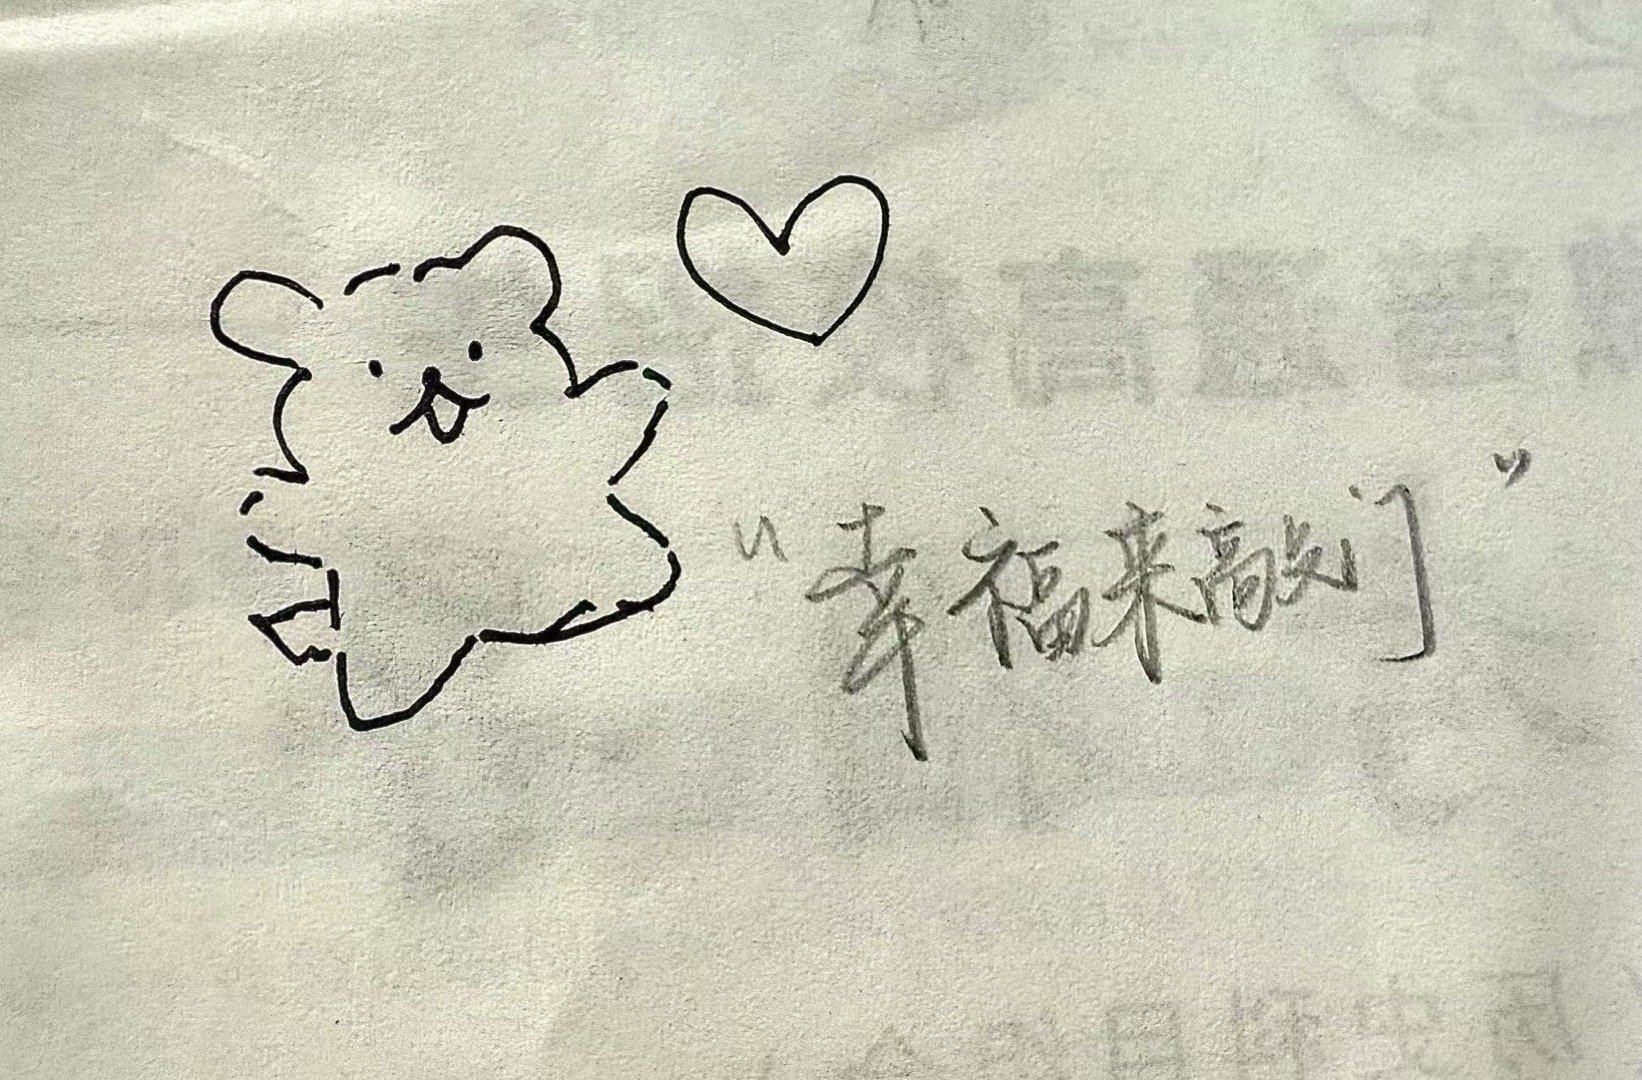 “幸福来敲门”